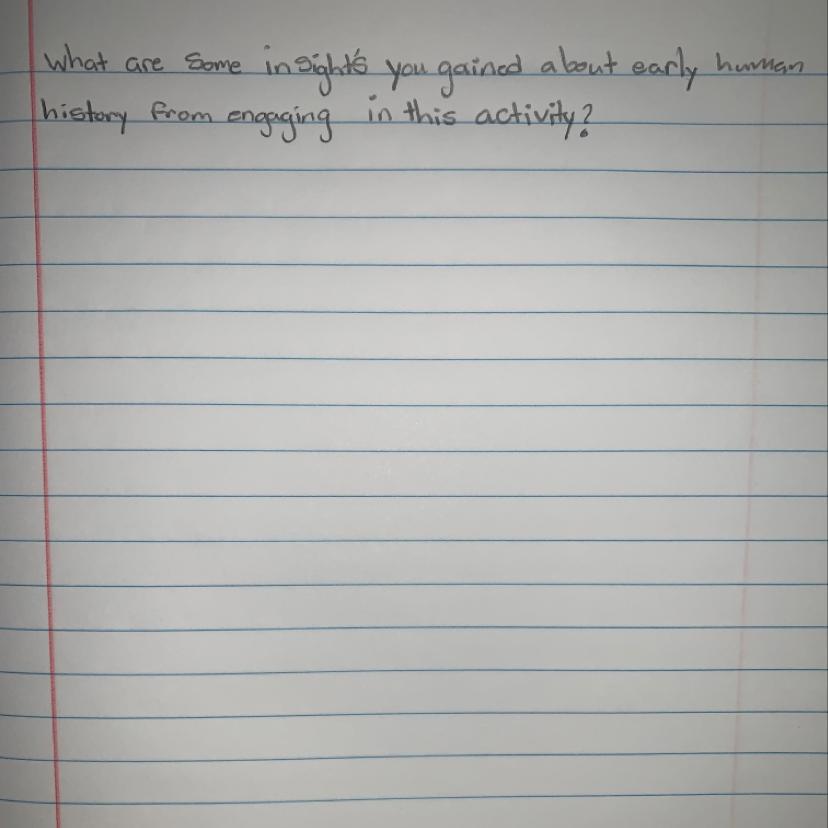 What are some insights you gained about early human
history from engaging in this activity?